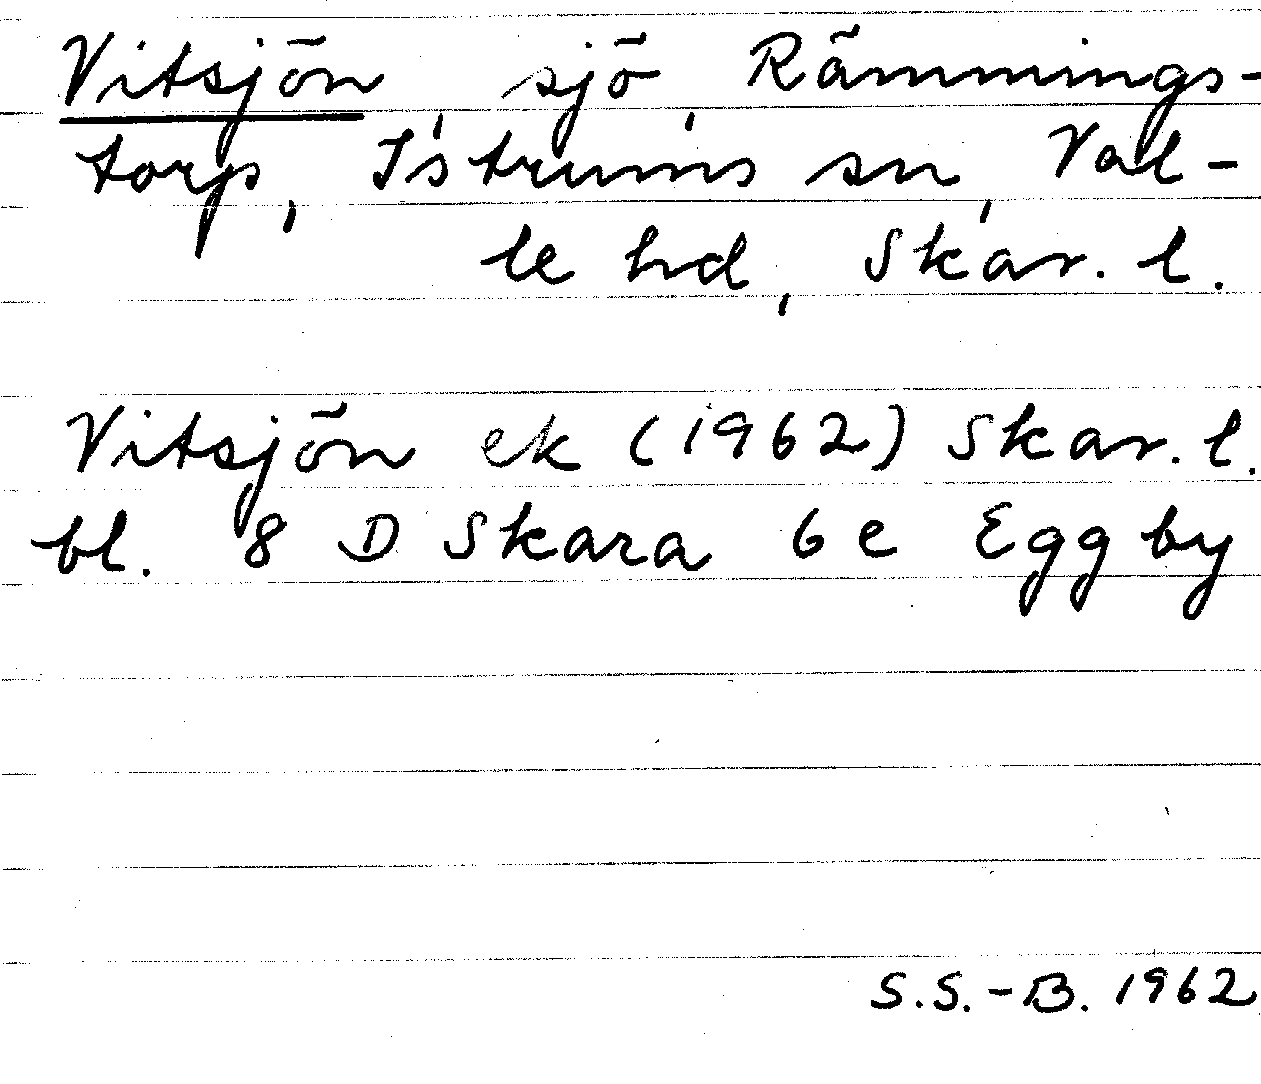 Vitsjön, sjö, Rämmings-
torp, Istrums sn, Val-
le hd, Skar. l.
Vitsjön ek (1962) Skar. l.
bl. 8 D Skara 6e Eggby
S.S.-B. 1962